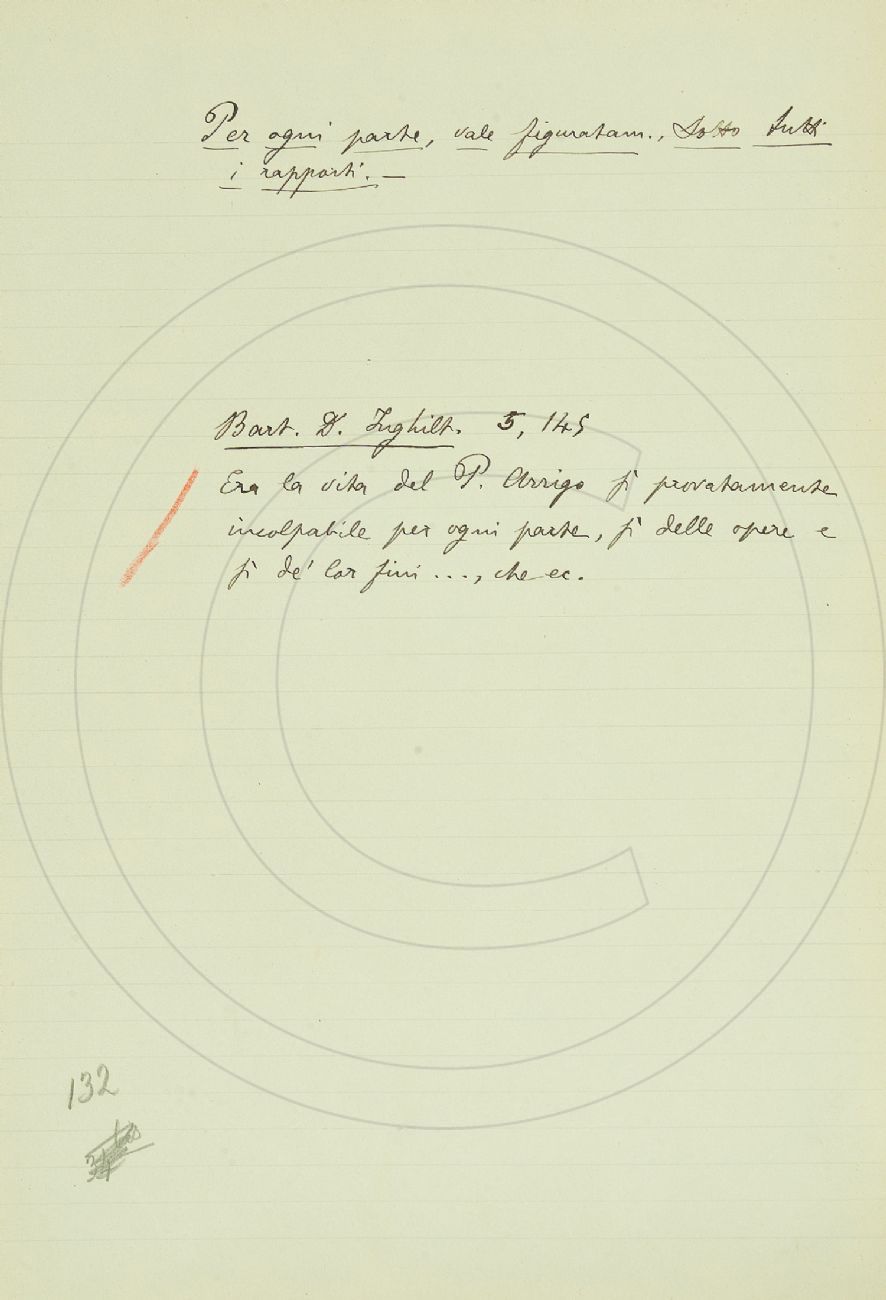 Per ogni parte, vale figuratam., sotto tutti
i rapporti. —
Bart. D. Inghilt. 5, 145
Era la vita del P. Arrigo sì provatamente
incolpabile per ogni parte, sì delle opere e
sì de' lor fini ..., che ec.
132